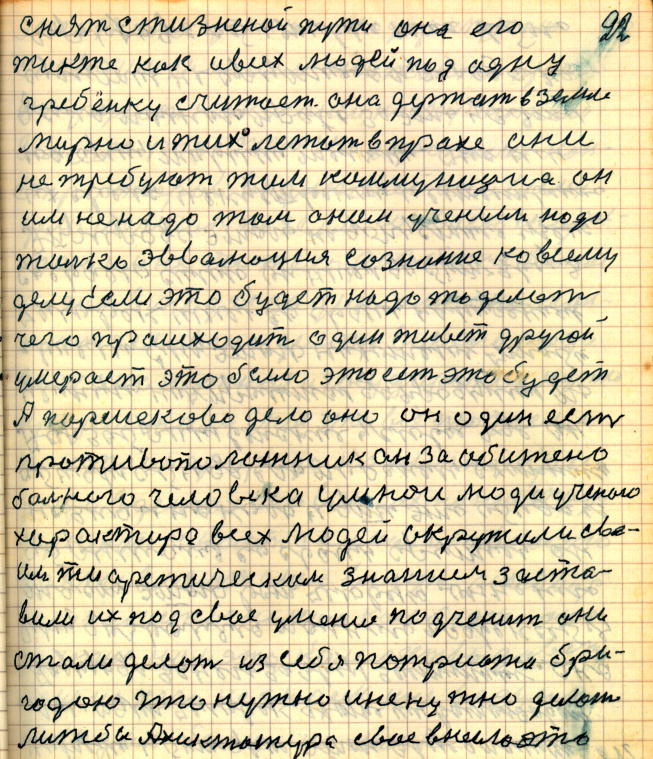 снят с тизненой пути она его 92
текте как ивсех людей под одну
гребёнку считает. она держат в земле
мирно и тихо летат в прахе они
не требуют там коммуницизма он
им не надо там оним ученим надо
только эвваляция сознание ко всему
делу Если это будет надо то делат
чего происходит один живет другой
умерает это было это ест это будет
А паршеково дело оно он один ест
противополотник он за обитено
болного человека умнои люди ученого
характира всех людей окружили сво-
им тиаретическим знанием заста-
вили их под свое умения подченит они
стали делат из себя патриота бри-
гадою что нужно и ненужно делат
литбы